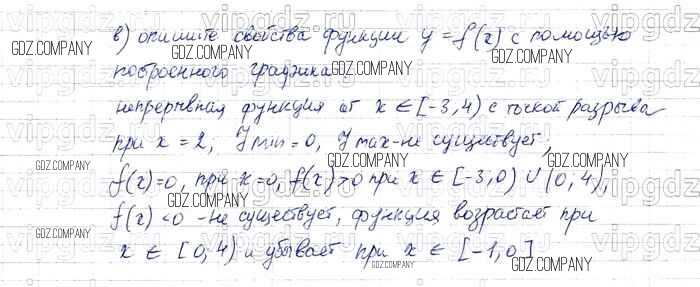 в) опишите свойства функции y = f(x) с помощью
построенного графика
непрерывная функция от x ∈ [-3,4) с точкой разрыва
при x = 2; Ymin = 0, Ymax - не существует;
f(x)=0, при x=0, f(x)>0 при x ∈ [-3,0) ∪ (0,4),
f(x) <0 - не существует, функция возрастает при
x ∈ [0,4) и убывает при x ∈ [-1,0]
GDZ.COMPANY
vipgdz.ru